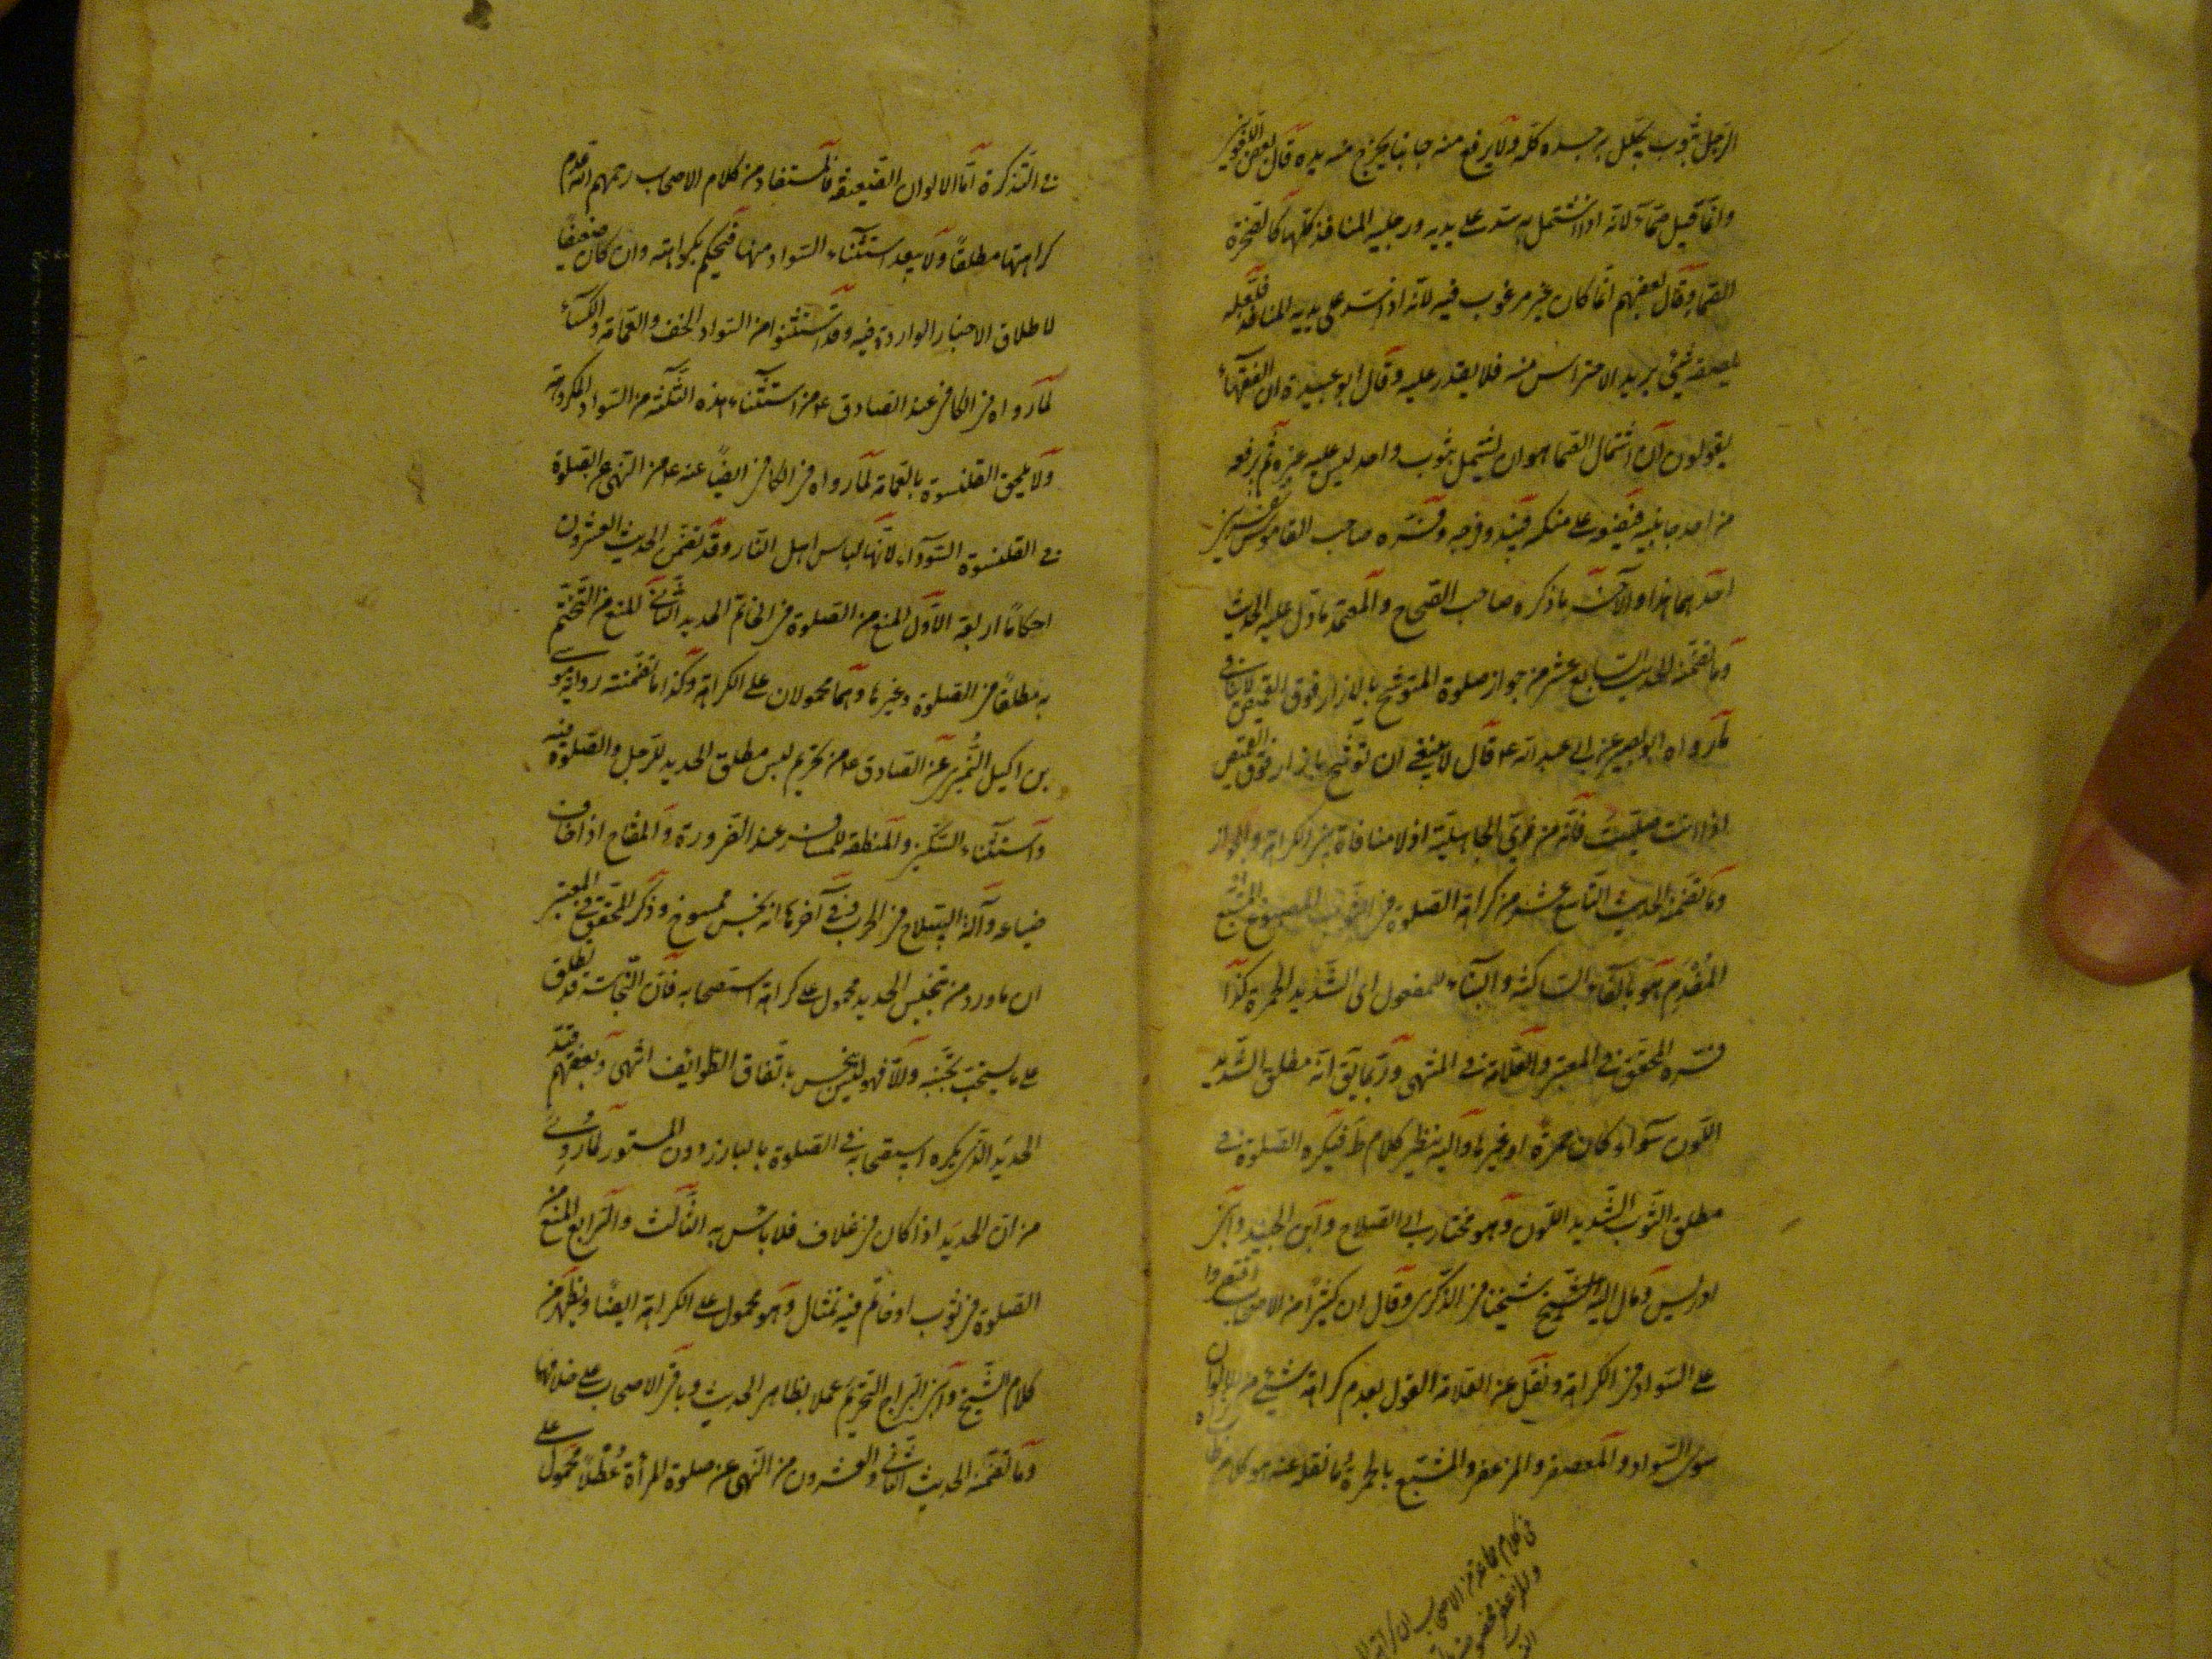 الرجل بثوب يجلل به جسده كله ولا يرفع منه جانبا يخرج منه يده قال بعض اللغويين
وانما قيل صماء لانه اذا اشتمل به سد على يديه ورجليه المنافذ كلها كالصخرة
الصماء وقال بعضهم انما كان غير مرغوب فيه لانه اذا سد على يديه المنافذ فلعله
يصيبه شئ يريد الاحتراس منه فلا يقدر عليه وقال ابو عبيدة ان الفقهاء
يقولون ان اشتمال الصما هو ان يشتمل بثوب واحد ليس عليه غيره ثم يرفعه
من احد جانبيه فيضعه على منكبه فيبدو فرجه وفسره صاحب القاموس بتفسيرين
احدهما هذا والاخر ما ذكره صاحب الصحاح والمعتمد ما دل عليه الحديث
وما تضمنه الحديث السابع عشر من جواز صلوة المتوشح بالازار فوق القميص لا ينافي
لما رواه ابو بصير عن ابي عبد الله ع قال لا ينبغي ان تتوشح بازار فوق القميص
اذا انت صليت فانه من زي الجاهلية اذ لا منافاة بين الكراهة والجواز
وما تضمنه الحديث التاسع عشر من كراهة الصلوة في الثوب المصبوغ المشبع
المفدم هو بالفاء الساكنة والبناء للمفعول اى الشديد الحمرة كذا
فسره المحقق في المعتبر والعلامة في المنتهى وربما يق انه مطلق الشديد
اللون سواء كان حمرة او غيرها واليه ينظر كلام ط فيكره الصلوة في
مطلق الثوب الشديد اللون وهو مختار ابي الصلاح وابن الجنيد وابن
ادريس ومال اليه الشيخ شيخنا في الذكرى وقال ان كثيرا من الاصحاب اقتصروا
على السواد في الكراهة ونقل عن العلامة القول بعدم كراهة شئ من الالوان
سوى السواد والمعصفر والمزعفر والمشبع بالحمرة وما نقله عنه هو كلامه
في كلام جماعة من الاصحاب ان كراهة
والمزعفر مخصوصة
في التذكرة اما الالوان الضعيفة فالمستفاد من كلام الاصحاب رحمهم الله عدم
كراهتها مطلقا ولا يبعد استثناء السواد منها فيحكم بكراهته وان كان ضعيفا
لاطلاق الاخبار الواردة فيه وقد استثنوا من السواد الخف والعمامة والكساء
لما رواه في الكافي عن الصادق ع من استثناء هذه الثلثة من السواد المكروه
ولا يلحق القلنسوة بالعمامة لما رواه في الكافي ايضا عنه ع من النهى عن الصلوة
في القلنسوة السوداء لانها لباس اهل النار وقد تضمن الحديث العشرون
احكاما اربعة الاول المنع من الصلوة في الخاتم الحديد الثاني المنع من التختم
به مطلقا في الصلوة وغيرها وهما محمولان على الكراهة وكذا ما تضمنته رواية موسى
بن اكيل النميري عن الصادق ع من تحريم لبس مطلق الحديد للرجل والصلوة فيه
واستثناء السكين والمنطقة للمسافر عند الضرورة والمفتاح اذا خاف
ضياعه وآلة السلاح في الحرب وفي آخرها انه نجس ممسوخ وذكر المحقق في المعتبر
ان ما ورد من تنجيس الحديد محمول على كراهة استصحابه فان النجاسة قد تطلق
على ما يستحب تجنبه والا فهو ليس بنجس باتفاق الطوائف انتهى وبعضهم قيد
الحديد الذي يكره استصحابه في الصلوة بالبارز دون المستور لما روى
من ان الحديد اذا كان في غلاف فلا بأس به الثالث والرابع المنع من
الصلوة في ثوب او خاتم فيه تمثال وهو محمول على الكراهة ايضا ويظهر من
كلام الشيخ وابن البراج التحريم عملا بظاهر الحديث وباقي الاصحاب على خلافهما
وما تضمنه الحديث الثاني والعشرون من النهى عن صلوة المرأة عطلا محمول على